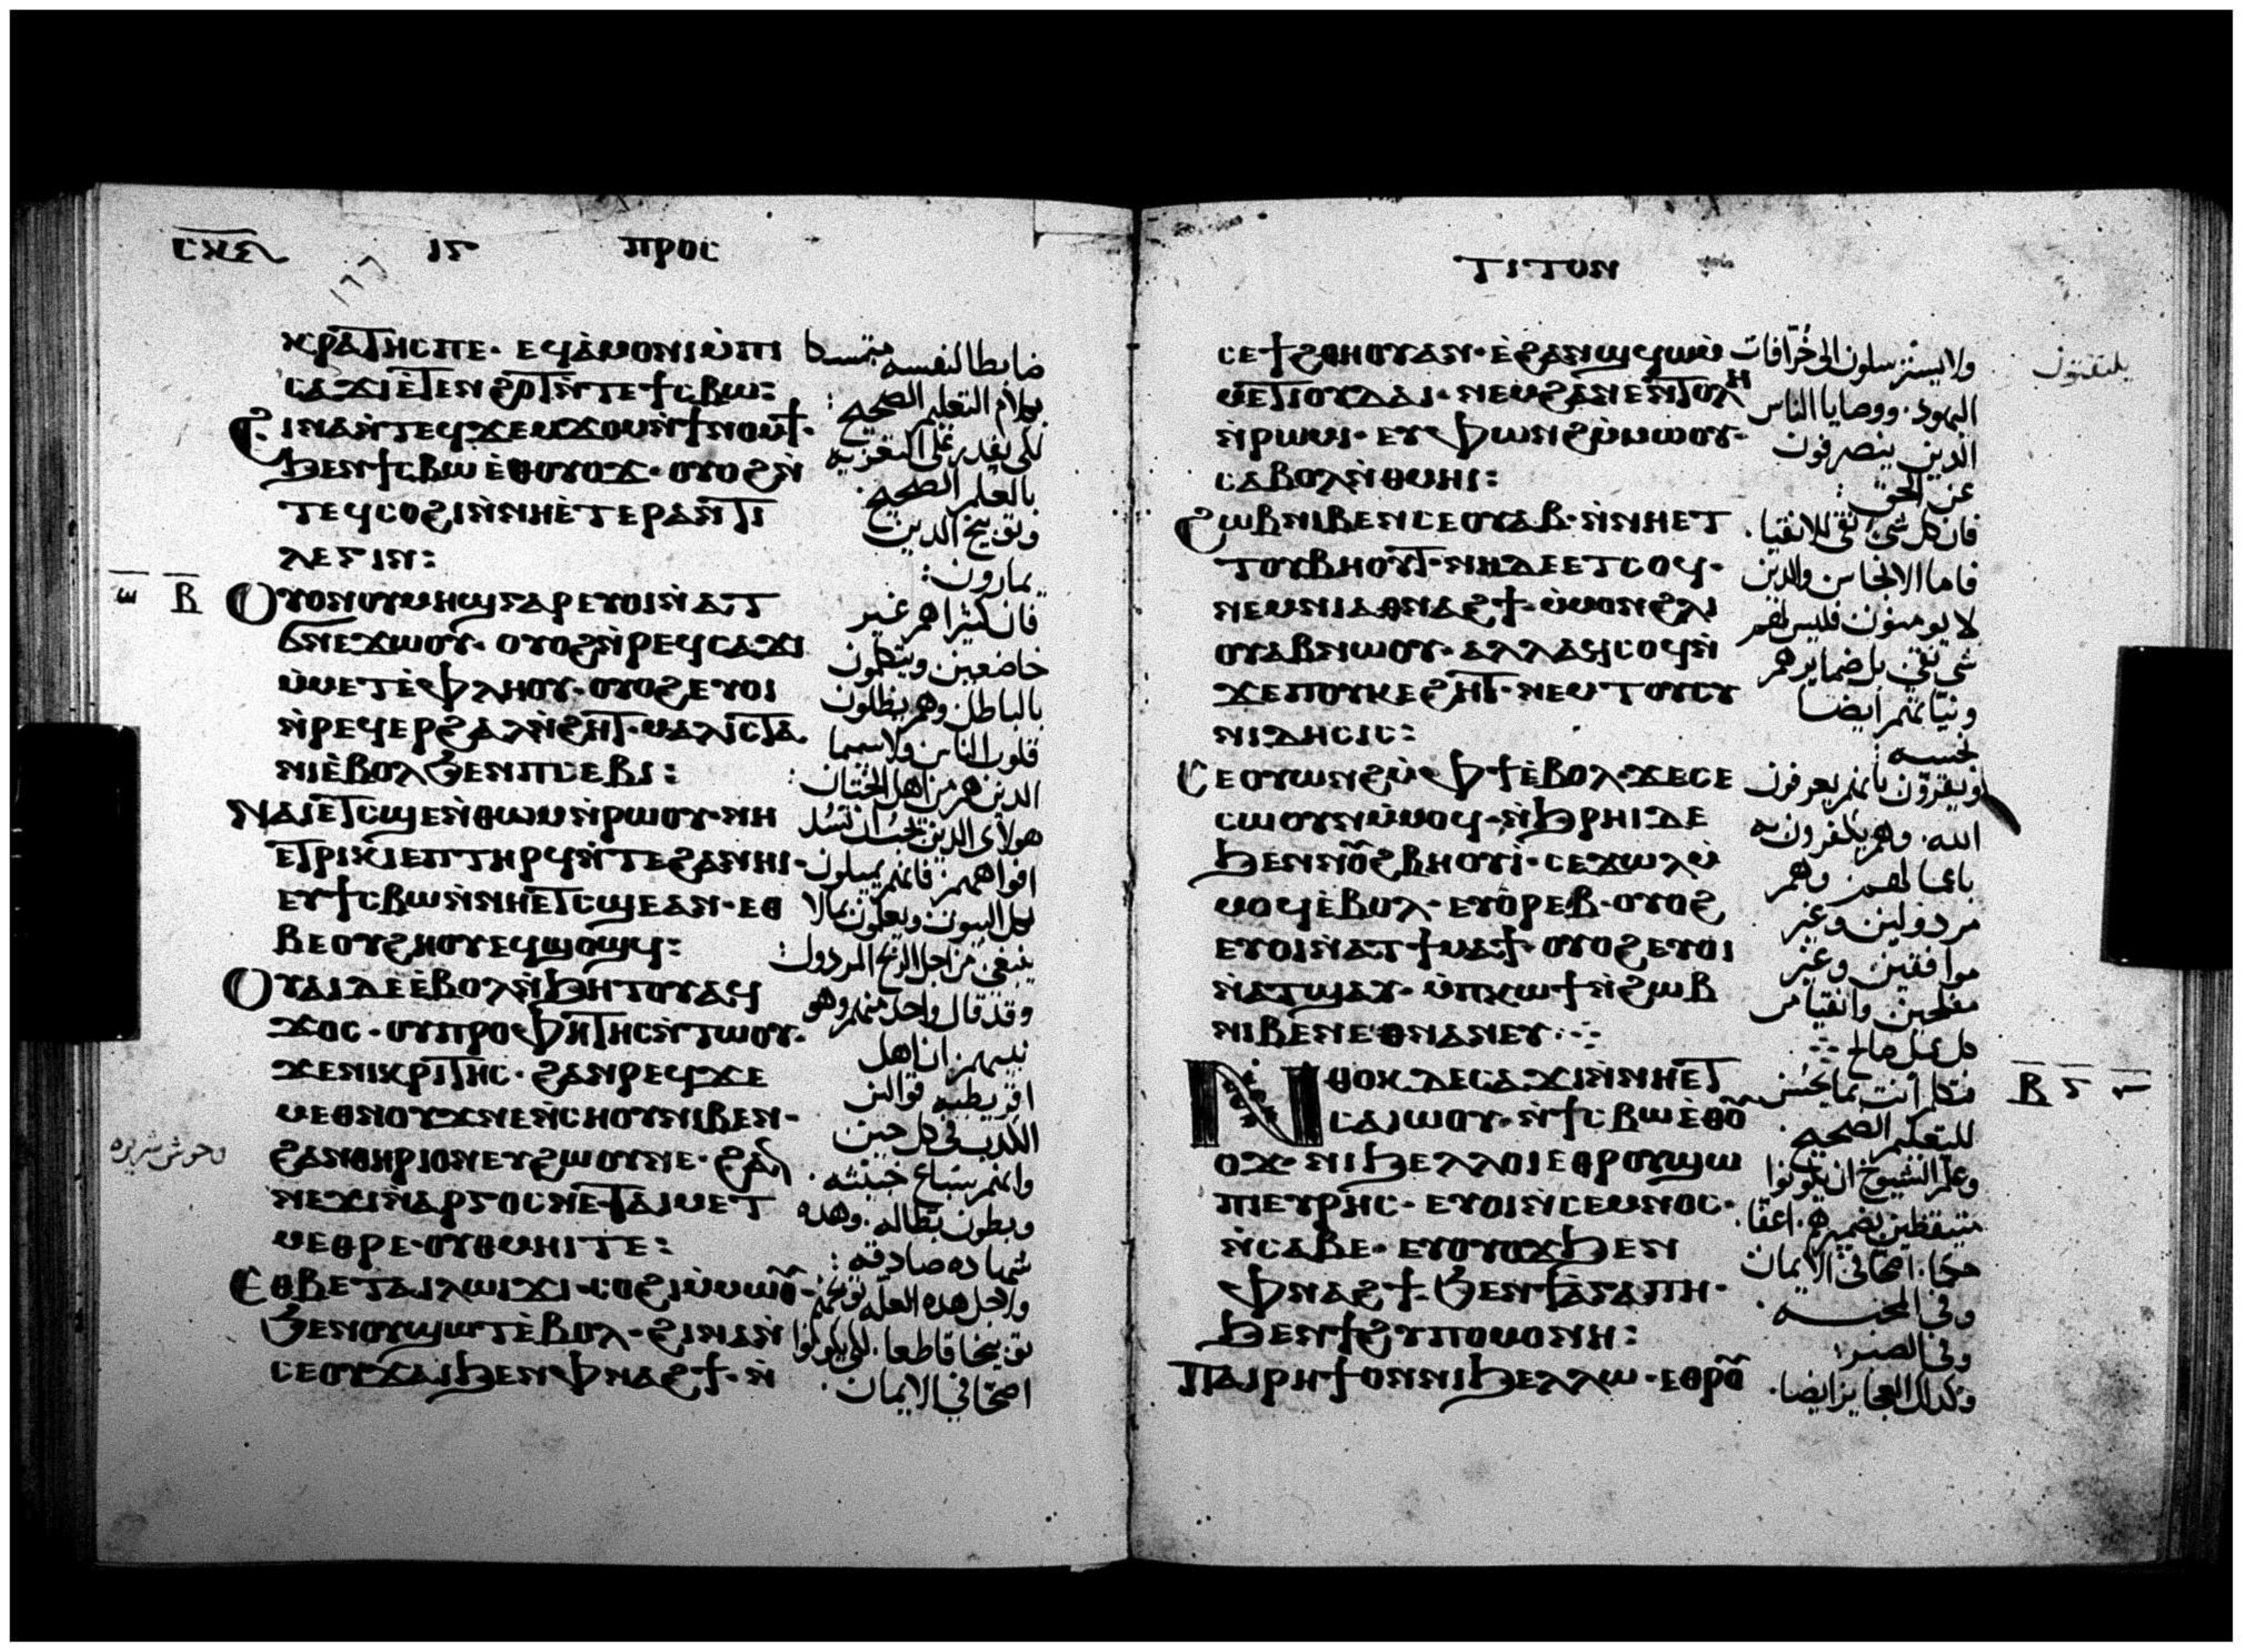 ⲡⲣⲟⲥ
ⲕⲣⲁⲧⲏⲥⲡⲉ· ⲉϥⲁⲙⲟⲛⲓⲙⲡⲓ
ⲥⲁϫⲓⲉⲧⲉⲛϩⲟⲧⲛⲧⲉϯⲥⲃⲱ:
ϩⲓⲛⲁⲛⲧⲉϥϫⲉⲙϫⲟⲙⲛϯⲛⲟⲙϯ·
ϧⲉⲛϯⲥⲃⲱ ⲉⲑⲟⲩⲟϫ· ⲟⲩⲟϩⲛ
ⲧⲉϥⲥⲟϩⲓⲛⲛⲏⲉⲧⲉⲣⲁⲛⲧⲓ
ⲗⲉⲅⲓⲛ:
ⲟⲩⲟⲛⲟⲩⲙⲏϣⲅⲁⲣⲉⲩⲟⲓⲛⲁⲧ
ϭⲛⲉϫⲱⲟⲩ· ⲟⲩⲟϩⲛⲣⲉϥⲥⲁϫⲓ
ⲙⲙⲉⲧⲉⲫⲗⲏⲟⲩ· ⲟⲩⲟϩⲉⲩⲟⲓ
ⲛⲣⲉϥⲉⲣϩⲁⲗⲛϩⲏⲧ· ⲙⲁⲗⲓⲥⲧⲁ
ⲛⲓⲉⲃⲟⲗϧⲉⲛⲡⲥⲉⲃⲓ:
ⲛⲁⲓⲉⲧⲥϣⲉⲛⲑⲱⲙⲛⲣⲱⲟⲩ· ⲛⲏ
ⲉⲧⲣⲓⲕⲓⲉⲡⲧⲏⲣϥⲛⲧⲉϩⲁⲛⲏⲓ·
ⲉⲩϯⲥⲃⲱⲛⲛⲏⲉⲧⲥϣⲉⲁⲛ· ⲉⲑ
ⲃⲉⲟⲩϩⲏⲟⲩⲉϥϣⲟϣϥ:
ⲟⲩⲁⲓⲇⲉⲉⲃⲟⲗⲛϧⲏⲧⲟⲩⲁϥ
ϫⲟⲥ· ⲟⲩⲡⲣⲟⲫⲏⲧⲏⲥⲛⲧⲱⲟⲩ·
ϫⲉⲛⲓⲕⲣⲓⲧⲏⲥ· ϩⲁⲛⲣⲉϥϫⲉ
ⲙⲉⲑⲛⲟⲩϫⲛⲉⲛⲥⲏⲟⲩⲛⲓⲃⲉⲛ·
ϩⲁⲛⲑⲏⲣⲓⲟⲛⲉⲩϩⲱⲟⲩⲛⲉ· ϩⲁⲛ
ⲛⲉϫⲓⲛⲁⲣⲅⲟⲥⲛⲉ· ⲧⲁⲓⲙⲉⲧ
ⲙⲉⲑⲣⲉ· ⲟⲩⲑⲙⲏⲓⲧⲉ:
ⲉⲑⲃⲉⲧⲁⲓⲗⲱⲓϫⲓ· ⲥⲟϩⲓⲙⲙⲱⲟⲩ·
ϧⲉⲛⲟⲩϣⲱⲧⲉⲃⲟⲗ· ϩⲓⲛⲁⲛ
ⲥⲉⲟⲩϫⲁⲓϧⲉⲛⲫⲛⲁϩϯ· ⲛ
ضابطا لنفسه متمسكا
بكلام التعليم الصحيح:
لكي يقدر على التعزيه
بالعلم الصحيح.
وتوبيخ الذين
يمارون:
فان كثيرا هم غير
خاضعين ويتكلمون
بالباطل وهم يظلون
قلوب الناس ولاسيما
الذين هم من اهل الختان:
هولاى الذين يجب ان تسد
افواههم. فانهم يميلون
كل البيوت ويعلمون بمالا
ينبغي من اجل الربح المردول:
وقد قال واحد منهم وهو
نبيهم ان اهل
اقريطيه قوالين
الكذب في كل حين
وانهم سباع خبيثه.
وبطون بطاله. وهذه
شهاده صادقه:
ولاجل هذه العله توبخهم
توبيخا قاطعا. لكي يكونوا
اصحا في الايمان.
ⲧⲓⲧⲟⲛ
ⲥⲉϯϩⲑⲏⲟⲩⲁⲛ· ⲉϩⲁⲛϣϥⲱⲙ
ⲙⲉⲧⲓⲟⲩⲇⲁⲓ· ⲛⲉⲙϩⲁⲛⲉⲛⲧⲟⲗⲏ
ⲛⲣⲱⲙⲓ· ⲉⲩⲫⲱⲛϩⲙⲙⲱⲟⲩ·
ⲥⲁⲃⲟⲗⲛⲑⲙⲏⲓ:
ϩⲱⲃⲛⲓⲃⲉⲛⲥⲉⲟⲩⲁⲃ· ⲛⲛⲏⲉⲧ
ⲧⲟⲩⲃⲏⲟⲩⲧ· ⲛⲏⲇⲉⲉⲧⲥⲟϥ·
ⲛⲉⲙⲛⲓⲁⲑⲛⲁϩϯ· ⲙⲙⲟⲛϩⲗⲓ
ⲟⲩⲁⲃⲛⲱⲟⲩ· ⲁⲗⲗⲁϥⲥⲟϥⲛ
ϫⲉⲡⲟⲩⲕⲉϩⲏⲧ· ⲛⲉⲙⲧⲟⲩⲥⲩ
ⲛⲓⲇⲏⲥⲓⲥ:
ⲥⲉⲟⲩⲱⲛϩⲙⲫϯⲉⲃⲟⲗ· ϫⲉⲥⲉ
ⲥⲱⲟⲩⲛⲙⲙⲟϥ· ⲛϧⲣⲏⲓⲇⲉ
ϧⲉⲛⲛⲟⲩϩⲃⲏⲟⲩⲓ· ⲥⲉϫⲱⲗⲙ
ⲙⲟϥⲉⲃⲟⲗ· ⲉⲩⲟⲣⲉⲃ· ⲟⲩⲟϩ
ⲉⲩⲟⲓⲛⲁⲧϯⲙⲁϯ· ⲟⲩⲟϩⲉⲩⲟⲓ
ⲛⲁⲧϣⲁⲩ· ⲙⲡⲕⲱϯⲛϩⲱⲃ
ⲛⲓⲃⲉⲛⲉⲑⲛⲁⲛⲉⲩ·:·
ⲛⲑⲟⲕⲇⲉⲥⲁϫⲓⲛⲛⲏⲉⲧ
ⲥⲁⲓⲱⲟⲩ· ⲛϯⲥⲃⲱⲉⲑⲟⲩ
ⲟϫ· ⲛⲓϧⲉⲗⲗⲟⲓⲉⲑⲣⲟⲩϣⲱ
ⲡⲉⲩⲣⲏⲥ· ⲉⲩⲟⲓⲛⲥⲉⲙⲛⲟⲥ·
ⲛⲥⲁⲃⲉ· ⲉⲩⲟⲩⲟϫϧⲉⲛ
ⲫⲛⲁϩϯ· ϧⲉⲛϯⲁⲅⲁⲡⲏ·
ϧⲉⲛϯϩⲩⲡⲟⲙⲟⲛⲏ:
ⲡⲁⲓⲣⲏϯⲟⲛⲛⲓϧⲉⲗⲗⲱ· ⲉⲑⲣⲟⲩ
ولا يسترسلون الى خرافات
اليهود. ووصايا الناس
الذين ينصرفون
عن الحق:
فان كل شي نقي للانقيا.
فاما الانجاس والذين
لا يومنون فليس لهم
شي نقي بل ضمايرهم
ونياتهم ايضا
نجسه:
ويقرون بانهم يعرفون
الله. وهم يكفرون به
باعمالهم. وهم
مردولين وغير
موافقين وغير
مفلحين وانقيا من
كل عمل صالح
فتكلم انت بما يحسن
للتعليم الصحيح.
وعلم الشيوخ ان يكونوا
متيقظين بضميرهم. اعفا.
حكما. اصحا في الايمان
وفي المحبه.
وفي الصبر:
وكذلك العجايز ايضا.
وحوش شريره